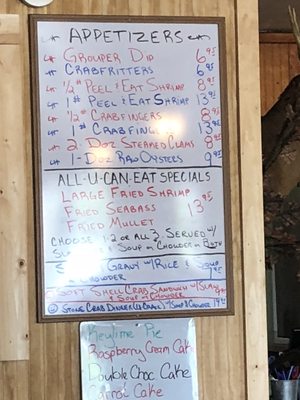 APPETIZERS
GROUPER DIP 6.95
CRABFRITTERS 6.95
1/2# PEEL & EAT SHRIMP 8.95
1# PEEL & EAT SHRIMP 13.95
1/2# CRABFINGERS 8.95
1# CRABFINGE 13.95
2 DOZ STEAMED CLAMS 8.95
1-DOZ RAW OYSTERS 9.95
ALL-U-CAN-EAT SPECIALS
LARGE FRIED SHRIMP
FRIED SEABASS 13.95
FRIED MULLET
CHOOSE 1-2 OR ALL 3 SERVED W/
SOUP OR CHOWDER
W/ RICE & SOUP
CHOWDER
SOFT SHELL CRAB SANDWICH W/ SLAW
& SOUP OR CHOWDER
STONE CRAB DINNER W/ SOUP & CHOWDER
Keylime Pie
Raspberry Cream Cake
Double Choc Cake
Carrot Cake